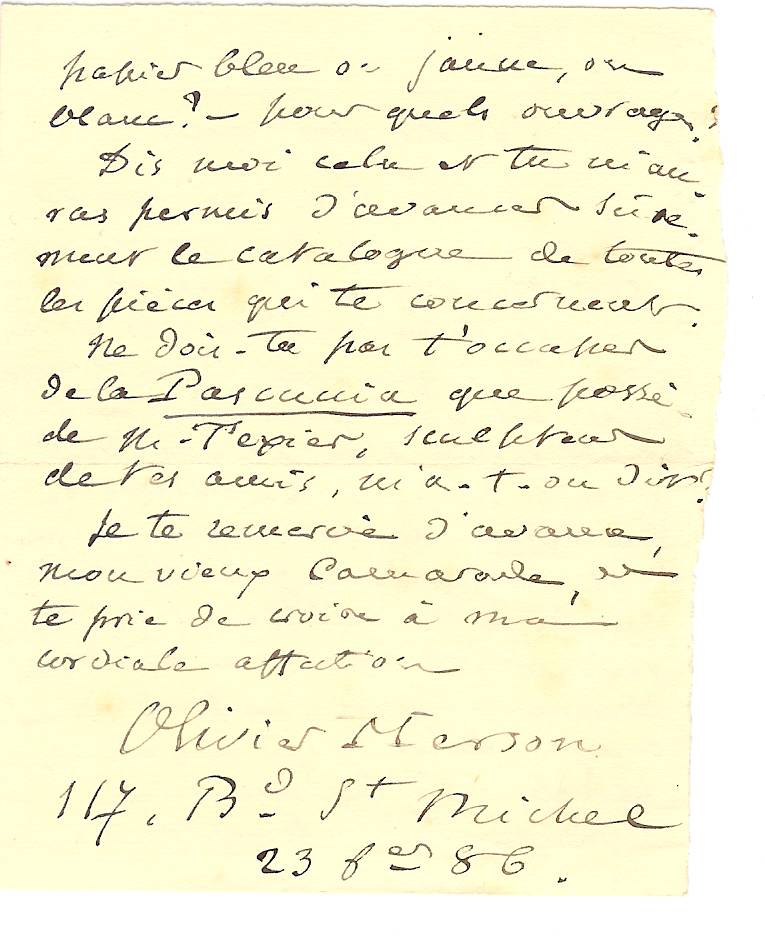 papier bleu ou jaune, ou
blanc? – pour quels ouvrages?
Dis moi cela et tu m'au-
ras permis d'avancer sûre-
ment le catalogue de toutes
les pièces qui te concernent.
Ne dois-tu pas t'occuper
de la que possè-
de M. Texier, sculpteur
de tes amis, m'a-t-on dit?
Je te remercie d'avance,
mon vieux Camarade, et
te prie de croire à ma
cordiale affection
Olivier Merson
117, Bd St Michel
23 fer 86.